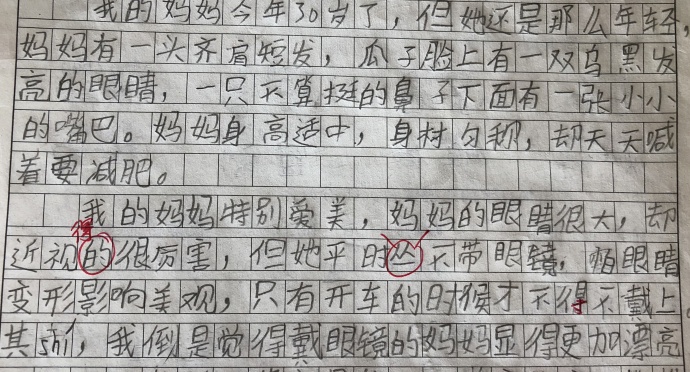 我的妈妈今年30岁了，但她还是那么年轻，
妈妈有一头齐肩短发，瓜子脸上有一双乌黑发
高的眼睛，一只不算挺的鼻子下面有一张小小
的嘴巴。妈妈身高适中，身材匀称，却天天喊
着要减肥。
我的妈妈特别爱美，妈妈的眼睛很大，却
得
近视的很厉害，但她平时丛不带眼镜，怕眼睛
变形影响美观，只有开车的时候才不得不戴上。
其shí，我倒是觉得戴眼镜的妈妈显得更加漂亮